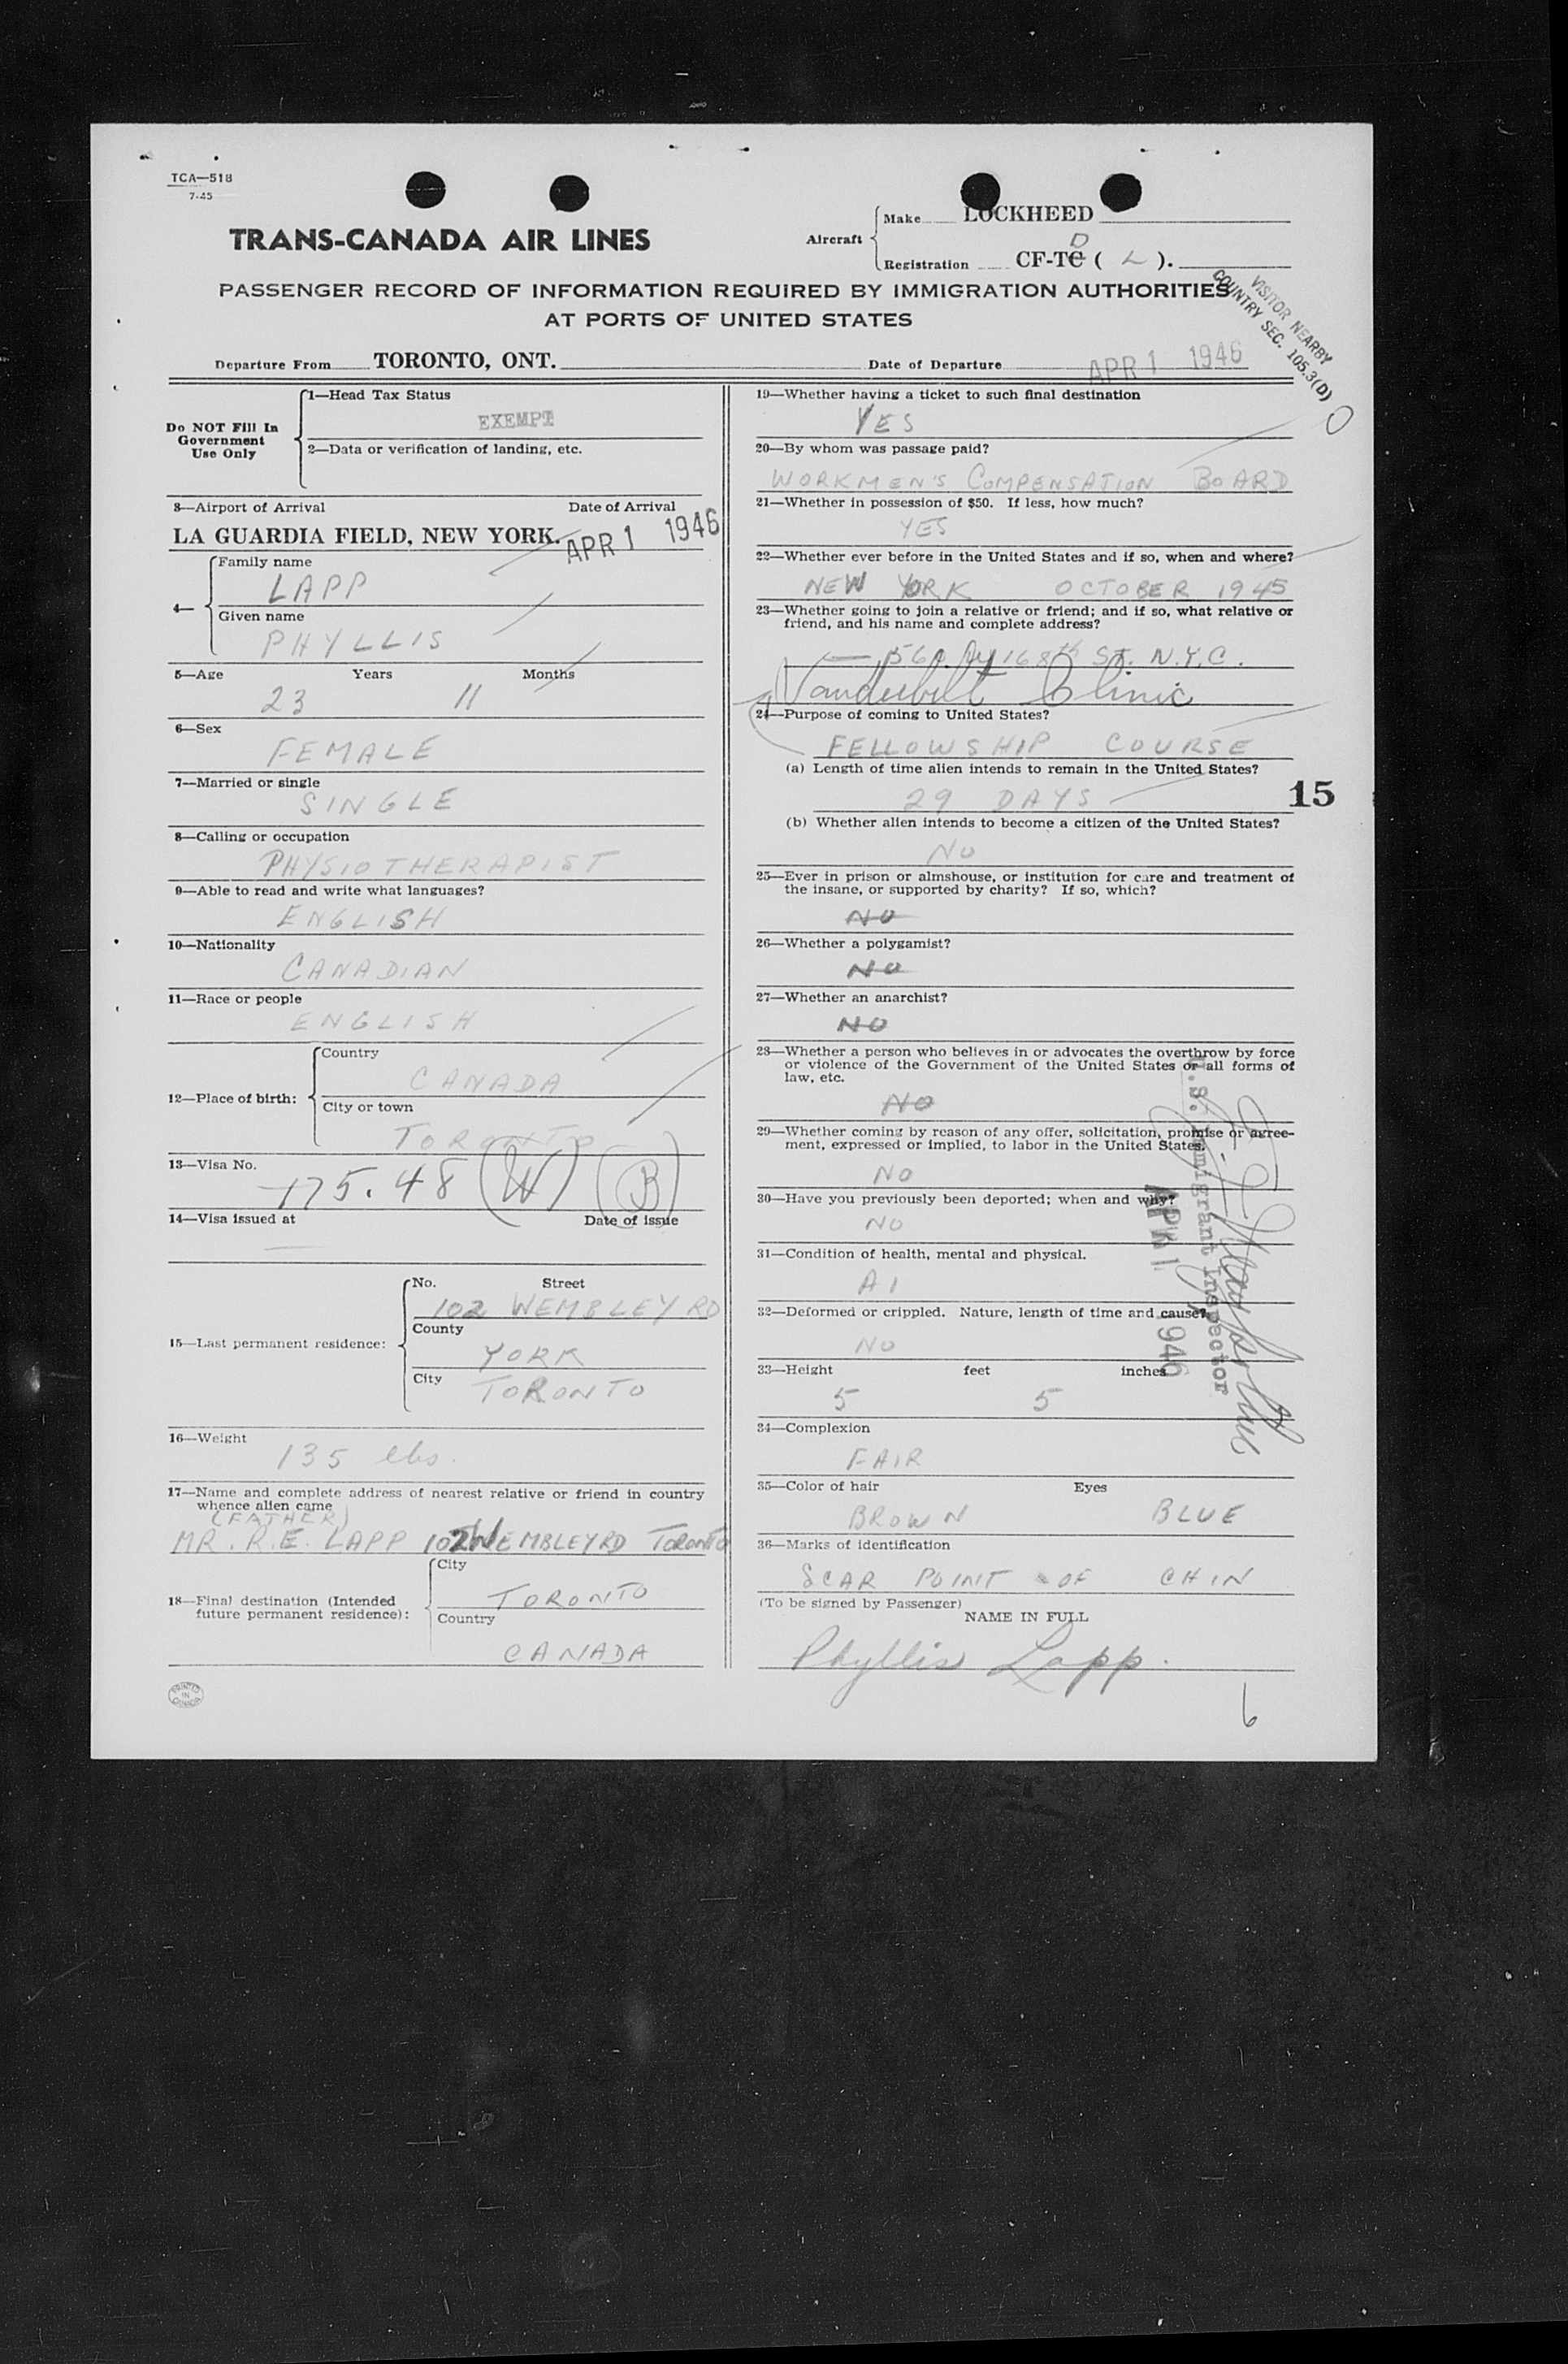 TCA—518
7-45
TRANS-CANADA AIR LINES
Aircraft
Make LOCKHEED
Registration CF-TC D ( L ).
PASSENGER RECORD OF INFORMATION REQUIRED BY IMMIGRATION AUTHORITIES
AT PORTS OF UNITED STATES
VISITOR NEARBY
COUNTRY SEC. 105.3(D)
Departure From TORONTO, ONT. Date of Departure APR 1 1946
Do NOT Fill In
Government
Use Only
1—Head Tax Status
EXEMPT
2—Data or verification of landing, etc.
3—Airport of Arrival Date of Arrival
LA GUARDIA FIELD, NEW YORK. APR 1 1946
4—
Family name
LAPP
Given name
PHYLLIS
5—Age Years Months
23 11
6—Sex
FEMALE
7—Married or single
SINGLE
8—Calling or occupation
PHYSIOTHERAPIST
9—Able to read and write what languages?
ENGLISH
10—Nationality
CANADIAN
11—Race or people
ENGLISH
12—Place of birth:
Country
CANADA
City or town
TORONTO
13—Visa No.
175.48 (W) (B)
14—Visa issued at Date of issue
15—Last permanent residence:
No. Street
102 WEMBLEY RD
County
YORK
City
TORONTO
16—Weight
135 lbs.
17—Name and complete address of nearest relative or friend in country
whence alien came
(FATHER)
MR. R.E. LAPP 102 WEMBLEY RD TORONTO
18—Final destination (Intended
future permanent residence):
City
TORONTO
Country
CANADA
PRINTED
IN
CANADA
19—Whether having a ticket to such final destination
YES
20—By whom was passage paid?
WORKMEN'S COMPENSATION BOARD
21—Whether in possession of $50. If less, how much?
YES
22—Whether ever before in the United States and if so, when and where?
NEW YORK OCTOBER 1945
23—Whether going to join a relative or friend; and if so, what relative or
friend, and his name and complete address?
168th ST. N.Y.C.
Vanderbilt Clinic
24—Purpose of coming to United States?
FELLOWSHIP COURSE
(a) Length of time alien intends to remain in the United States?
29 DAYS
15
(b) Whether alien intends to become a citizen of the United States?
NO
25—Ever in prison or almshouse, or institution for care and treatment of
the insane, or supported by charity? If so, which?
NO
26—Whether a polygamist?
NO
27—Whether an anarchist?
NO
28—Whether a person who believes in or advocates the overthrow by force
or violence of the Government of the United States or all forms of
law, etc.
NO
29—Whether coming by reason of any offer, solicitation, promise or agree-
ment, expressed or implied, to labor in the United States.
NO
30—Have you previously been deported; when and why?
NO
31—Condition of health, mental and physical.
A1
32—Deformed or crippled. Nature, length of time and cause?
NO
33—Height feet inches
5 5
34—Complexion
FAIR
35—Color of hair Eyes
BROWN BLUE
36—Marks of identification
SCAR POINT OF CHIN
(To be signed by Passenger)
NAME IN FULL
Phyllis Lapp.
6
U.S. Immigrant Inspector
APR 1 1946